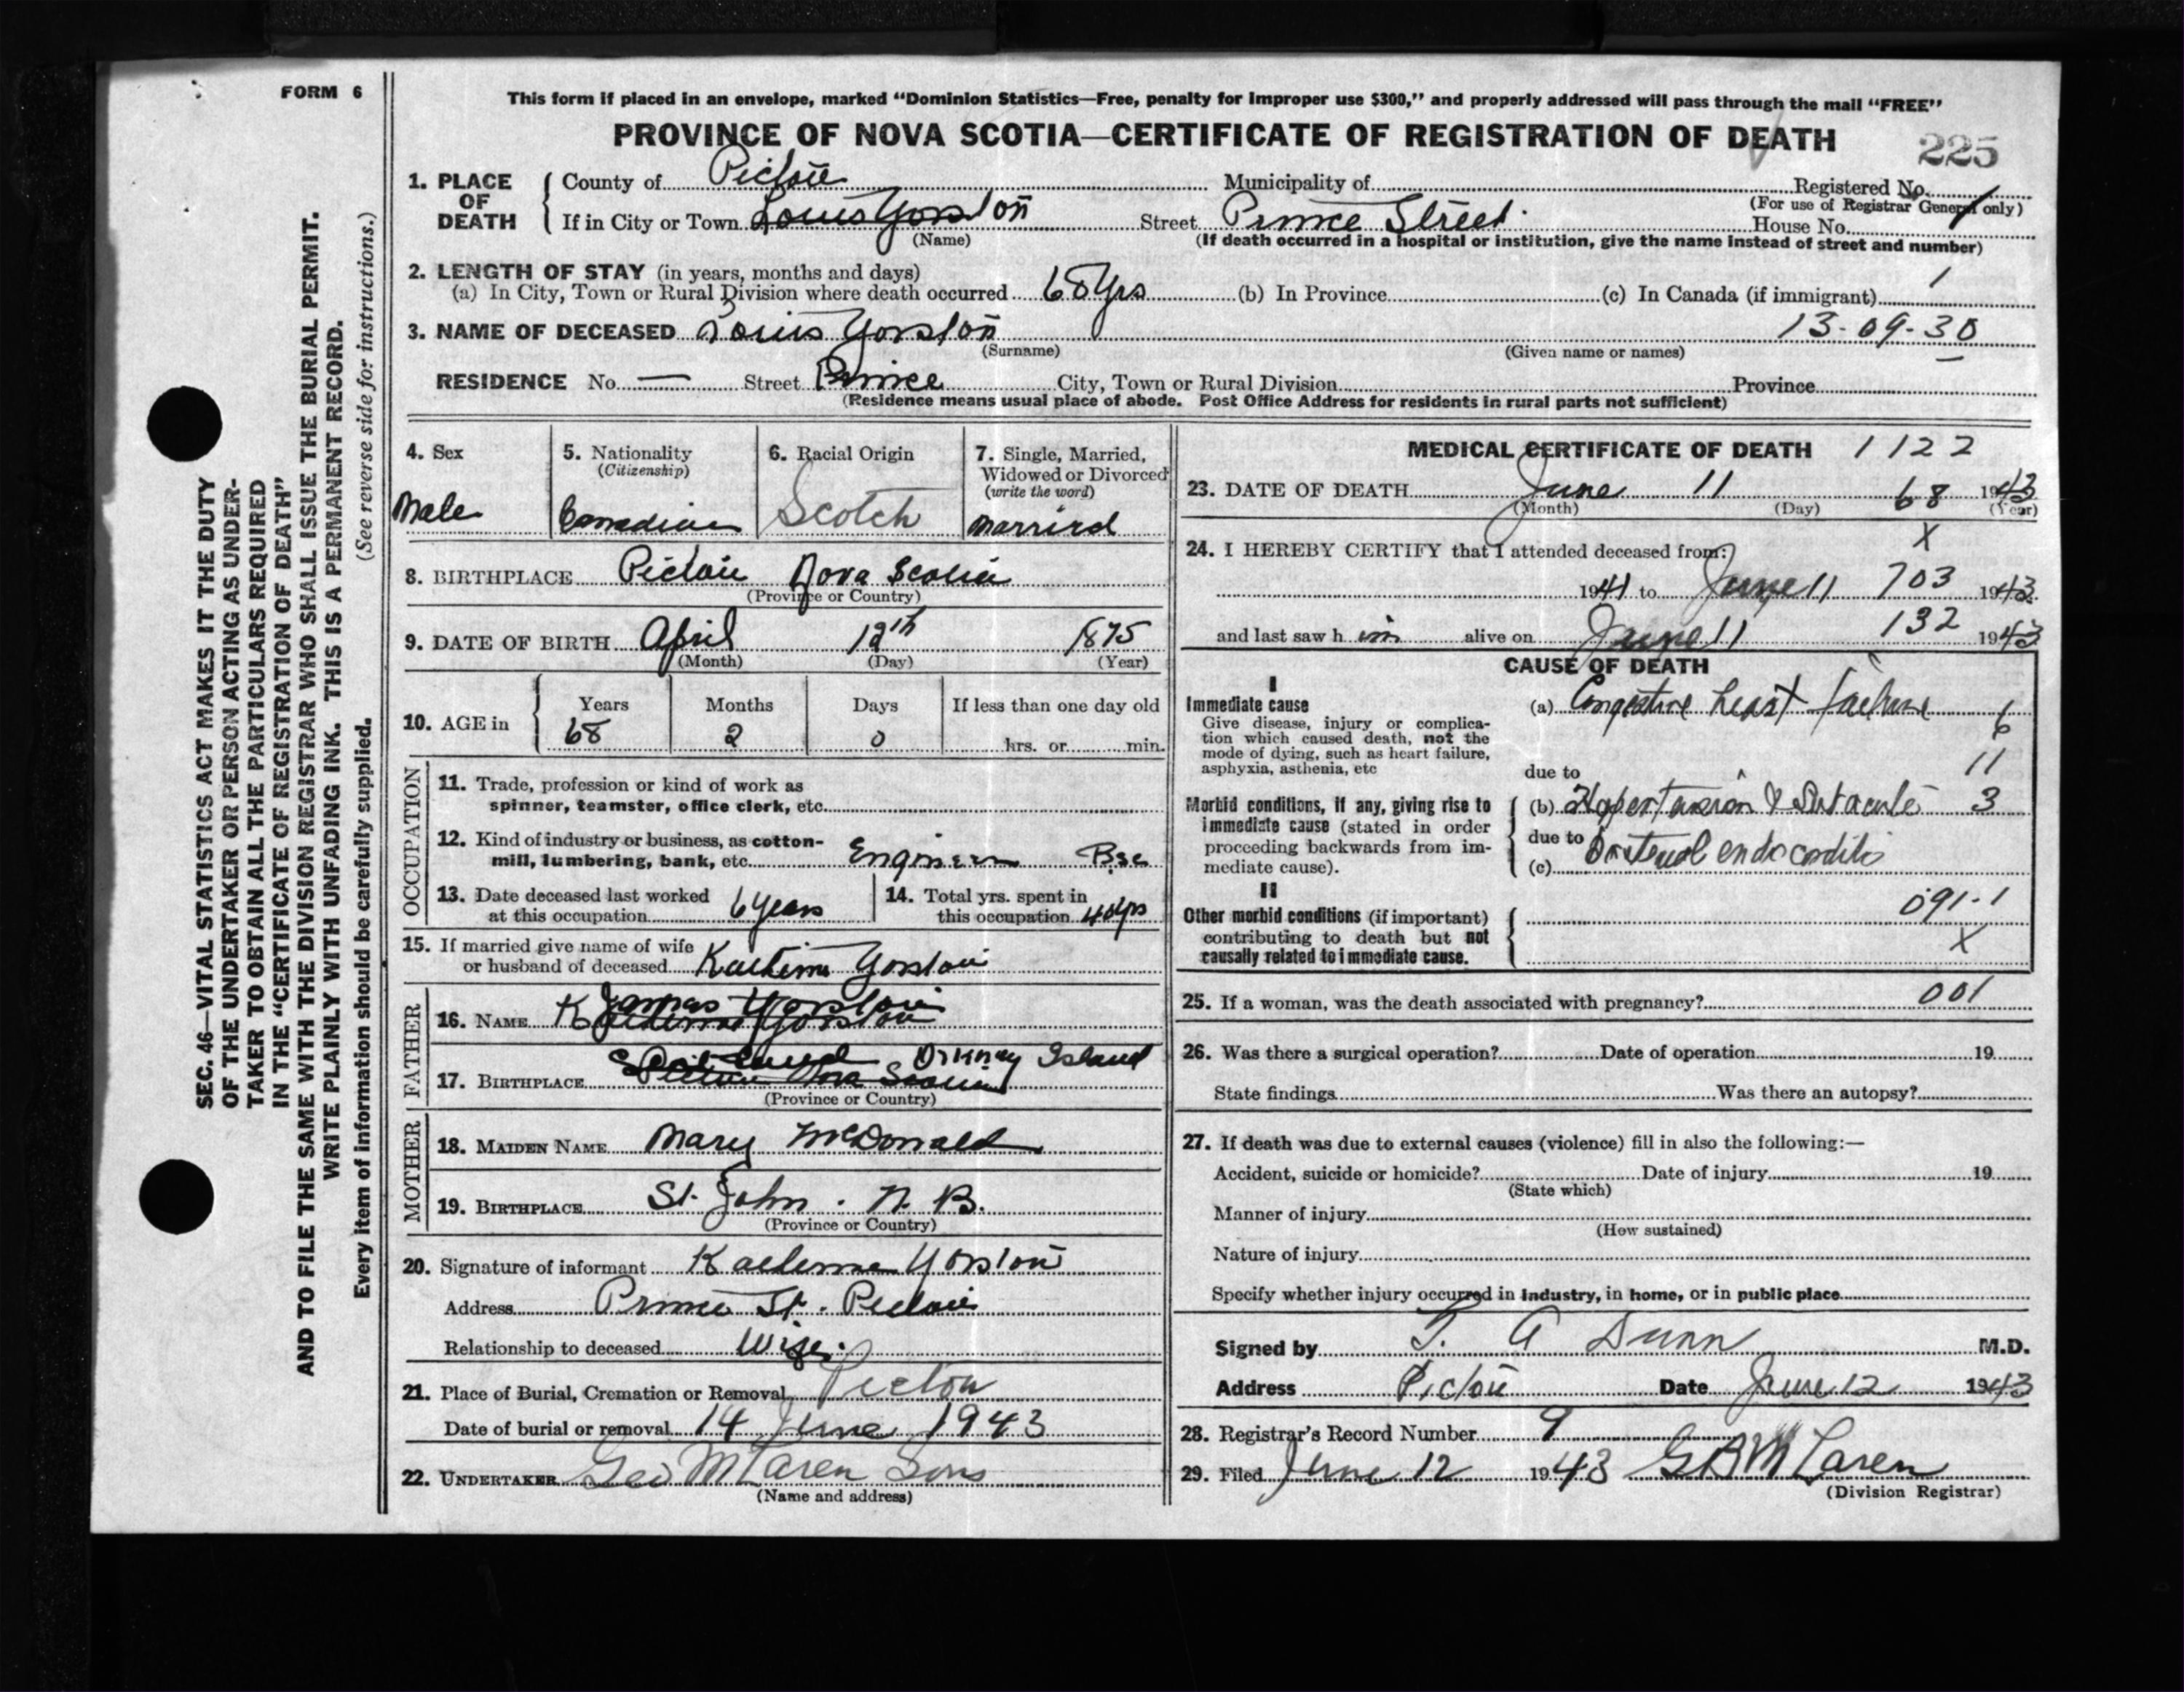 FORM 6
SEC. 46—VITAL STATISTICS ACT MAKES IT THE DUTY
OF THE UNDERTAKER OR PERSON ACTING AS UNDER-
TAKER TO OBTAIN ALL THE PARTICULARS REQUIRED
IN THE "CERTIFICATE OF REGISTRATION OF DEATH"
AND TO FILE THE SAME WITH THE DIVISION REGISTRAR WHO SHALL ISSUE THE BURIAL PERMIT.
WRITE PLAINLY WITH UNFADING INK. THIS IS A PERMANENT RECORD.
Every item of information should be carefully supplied. (See reverse side for instructions.)
This form if placed in an envelope, marked "Dominion Statistics—Free, penalty for improper use $300," and properly addressed will pass through the mail "FREE"
PROVINCE OF NOVA SCOTIA—CERTIFICATE OF REGISTRATION OF DEATH 225
1. PLACE OF DEATH County of Pictou Municipality of Registered No.
(For use of Registrar General only)
If in City or Town Louis Yorston Street Prince Street House No.
(Name) (If death occurred in a hospital or institution, give the name instead of street and number)
2. LENGTH OF STAY (in years, months and days) 1
(a) In City, Town or Rural Division where death occurred 68 yrs (b) In Province (c) In Canada (if immigrant)
3. NAME OF DECEASED Louis Yorston 13-09-30
(Surname) (Given name or names)
RESIDENCE No. — Street Prince City, Town or Rural Division Province
(Residence means usual place of abode. Post Office Address for residents in rural parts not sufficient)
4. Sex Male
5. Nationality (Citizenship) Canadian
6. Racial Origin Scotch
7. Single, Married, Widowed or Divorced (write the word) Married
8. BIRTHPLACE Pictou Nova Scotia
(Province or Country)
9. DATE OF BIRTH April 12th 1875
(Month) (Day) (Year)
10. AGE in Years Months Days If less than one day old
68 2 0 hrs. or min.
OCCUPATION
11. Trade, profession or kind of work as
spinner, teamster, office clerk, etc.
12. Kind of industry or business, as cotton-
mill, lumbering, bank, etc. Engineer
13. Date deceased last worked at this occupation 6 years
14. Total yrs. spent in this occupation 40 yrs
15. If married give name of wife
or husband of deceased Katherine Yorston
FATHER
16. NAME James Yorston
17. BIRTHPLACE Orkney Island
(Province or Country)
MOTHER
18. MAIDEN NAME Mary McDonald
19. BIRTHPLACE St. John. N. B.
(Province or Country)
20. Signature of informant Katherine Yorston
Address Prince St. Pictou
Relationship to deceased Wife.
21. Place of Burial, Cremation or Removal Pictou
Date of burial or removal 14 June 1943
22. UNDERTAKER Geo McLaren Sons
(Name and address)
MEDICAL CERTIFICATE OF DEATH 1122
23. DATE OF DEATH June 11 68 1943
(Month) (Day) (Year)
X
24. I HEREBY CERTIFY that I attended deceased from:
1941 to June 11 703 1943
and last saw h im alive on June 11 132 1943
CAUSE OF DEATH
I
Immediate cause
Give disease, injury or complica-
tion which caused death, not the
mode of dying, such as heart failure,
asphyxia, asthenia, etc
(a) Congestive heart failure 6
due to 11
Morbid conditions, if any, giving rise to
immediate cause (stated in order
proceeding backwards from im-
mediate cause).
(b) Hypertension & Subacute 3
due to Bacterial endocarditis
(c)
II
Other morbid conditions (if important)
contributing to death but not
causally related to immediate cause.
091-1
X
25. If a woman, was the death associated with pregnancy? 001
26. Was there a surgical operation? Date of operation 19
State findings Was there an autopsy?
27. If death was due to external causes (violence) fill in also the following:—
Accident, suicide or homicide? Date of injury 19
(State which)
Manner of injury
(How sustained)
Nature of injury
Specify whether injury occurred in industry, in home, or in public place
Signed by A Dunn M.D.
Address Pictou Date June 12 1943
28. Registrar's Record Number 9
29. Filed June 12 1943 G B McLaren
(Division Registrar)